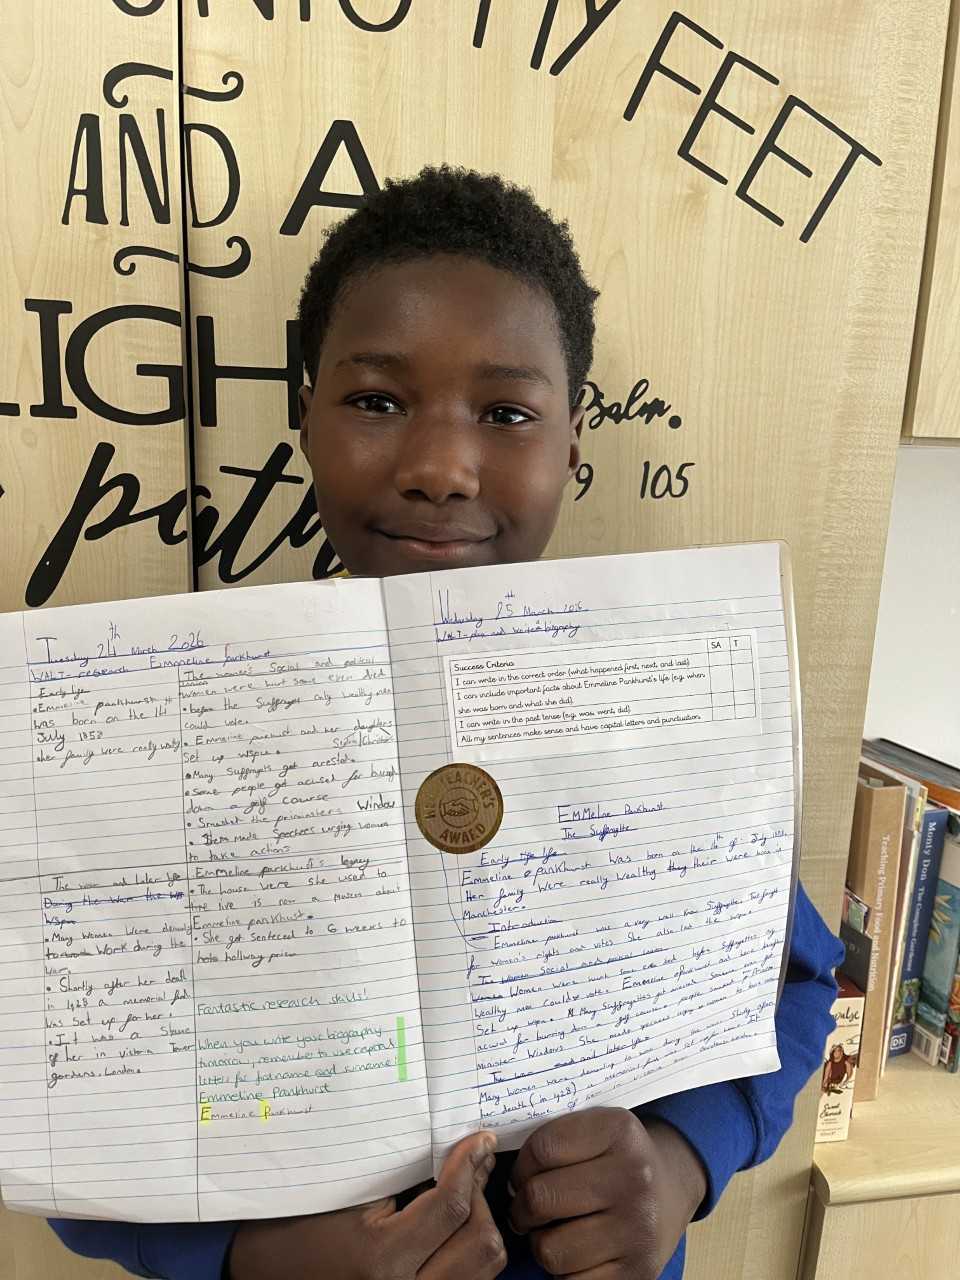 UNTO MY FEET
AND A
LIGHT
path
Psalm.
119 105
Tuesday 24th March 2026
WALT- research Emmeline parkhurst
Early life
• Emmeline pankhurst
was born on the 14th
July 1858
• Her family were really
The women's Social and political
women were but some even died
• before the Suffrages only wealthy men
could vote.
• Emmeline pankhurst and her daughters
Set up wspu.
• Many Suffragets got arested.
• Some people got acused for
down a golf course
• Smashet the Window
• made Speeches urging women
to take actions
Emmeline parkhurst's legacy
• The house were she used to
live is now a about
Emmeline parkhurst.
• She got Sentecced to 6 weeks to
hollway prison
The and later life
During the Were the
Wspu
• Many Women Were
to work during the
war.
• Shortly after her death
in 1928 a memorial
was Set up for her.
• It was a
of her in victoria Tower
gardens. London.
Fantastic research skills!
When you write your biography
tomorrow, remember to use capital
letters for first name and surname:
Emmeline Pankhurst
Emmeline Pankhurst
Wednesday 25th March 2026
WALT- plan and write a biography
Success Criteria
SA
T
I can write in the correct order (what happened first, next, and last)
I can include important facts about Emmeline Pankhurst's life (e.g. when
she was born and what she did).
I can write in the past tense (e.g. was, went, did).
All my sentences make sense and have capital letters and punctuation.
TEACHER'S
AWARD
EMMelne Pankhurst
The Suffragette
Early life
Emmeline Pankhurst Was born on the 14th of July 1858.
Her family Were really Wealthy their were born in
Manchester.
Introduction
Emmeline pankhurst was a very well Know Suffragette She fought
for women's rights and votes. She also led the wspu.
The Women Social and political union
Women Were some even died before Suffragettes only
Wealthy men could vote. Emmeline pankhurst and her daughters
Set up wspu. Many Suffragettes got arested Someone even got
acused for burning down a golf course people smashed a
minister Windows. She made Speeches urging women to take action
The and later life
Many Women Were to work during the war. Shortly after
her death (in 1928) a memorial was set up for her. It
was a of her in victoria
Teaching Primary Food and Nutrition
Monty Don The Complete Gardener
DK